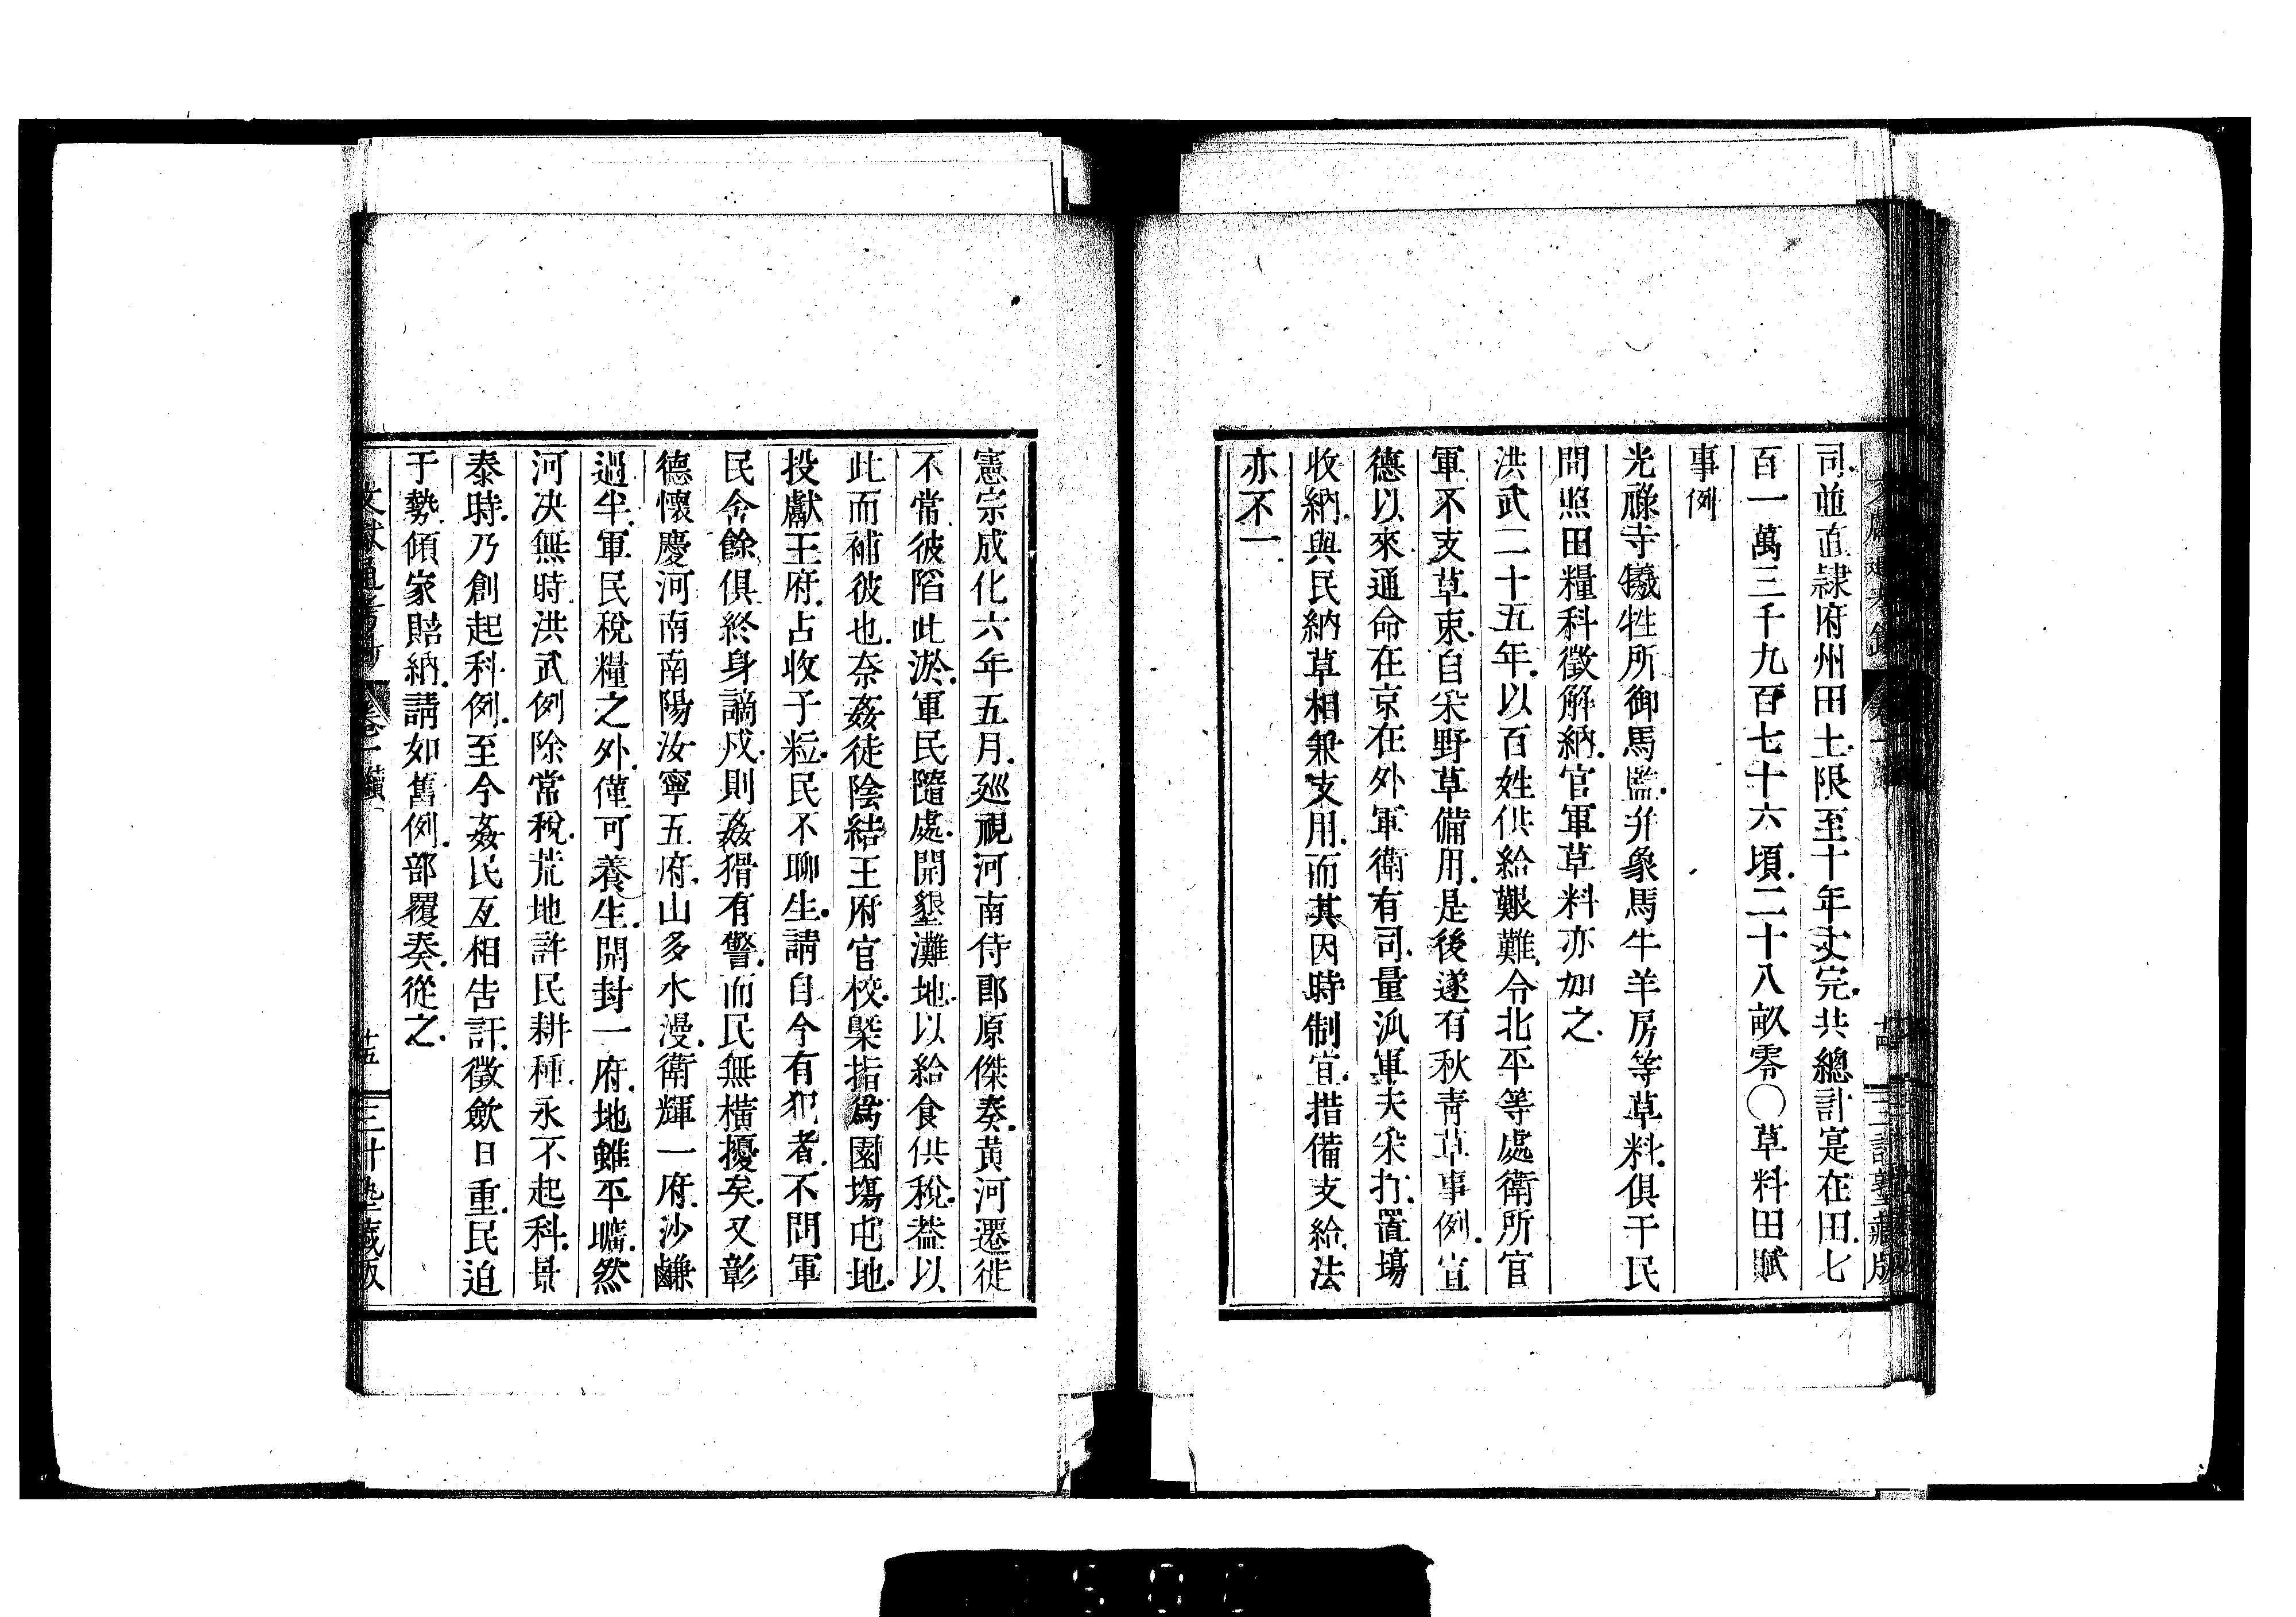 司並直隷府州田土限至十年丈完共總計寔在田七
百一萬三千九百七十六頃二十八畝零〇草料田賦
事例
光祿寺犧牲所御馬監并象馬牛羊房等草料俱干民
間照田糧科徵解納官軍草料亦如之
洪武二十五年以百姓供給艱難令北平等處衛所官
軍不支草束自采野草備用是後遂有秋青草事例宣
德以來通命在京在外軍衛有司量派軍夫采打置塲
收納與民納草相兼支用而其因時制宜措備支給法
亦不一
憲宗成化六年五月廵視河南侍郎原傑奏黃河遷徙
不常彼陷此淤軍民隨處開墾灘地以給食供稅葢以
此而補彼也奈姦徒陰結王府官校槩指爲園塲屯地
投獻王府占收子粒民不聊生請自今有犯者不問軍
民舍餘俱終身謫戍則姦猾有警而民無橫擾矣又彰
德懷慶河南南陽汝寧五府山多水漫衛輝一府沙鹹
過半軍民稅糧之外僅可養生開封一府地雖平曠然
河决無時洪武例除常稅荒地許民耕種永不起科景
泰時乃創起科例至今姦民互相告訐徵歛日重民迫
于勢傾家賠納請如舊例部覆奏從之
卷一
三 藏版